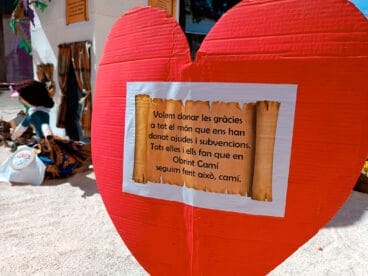 Volem donar les gràcies
a tot el món que ens han
donat ajudes i subvencions.
Tots elles i ells fan que en
Obrint Camí
seguim fent això, camí.